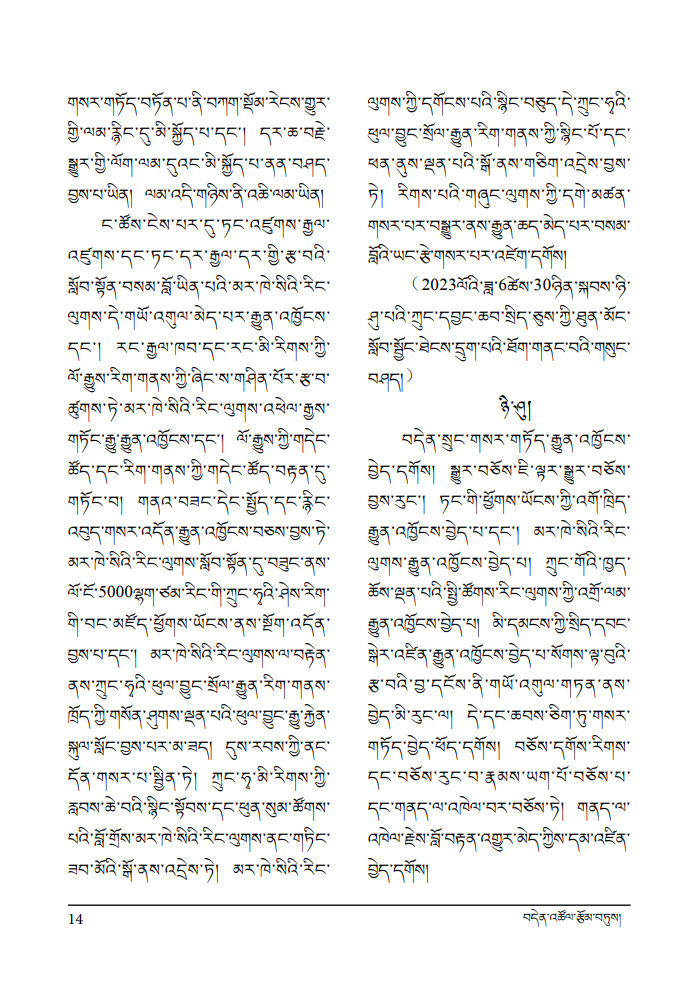 གསར་གཏོད་བཏོན་པ་ནི་བཀག་སྡོམ་རེངས་གྱུར་
གྱི་ལམ་རྙིང་དུ་མི་སྐྱོད་པ་དང་། དར་ཆ་བརྗེ་
སྒྱུར་གྱི་ལོག་ལམ་དུའང་མི་སྐྱོད་པ་ནན་བཤད་
བྱས་པ་ཡིན། ལམ་འདི་གཉིས་ནི་འཆི་ལམ་ཡིན།
ང་ཚོས་ངེས་པར་དུ་ཏང་འཛུགས་རྒྱལ་
འཛུགས་དང་ཏང་དར་རྒྱལ་དར་གྱི་རྩ་བའི་
སློབ་སྟོན་བསམ་བློ་ཡིན་པའི་མར་ཁེ་སིའི་རིང་
ལུགས་དེ་གཡོ་འགུལ་མེད་པར་རྒྱུན་འཁྱོངས་
དང་། རང་རྒྱལ་ཁབ་དང་རང་མི་རིགས་ཀྱི་
ལོ་རྒྱུས་རིག་གནས་ཀྱི་ཞིང་ས་གཤིན་པོར་རྩ་བ་
ཚུགས་ཏེ་མར་ཁེ་སིའི་རིང་ལུགས་འཕེལ་རྒྱས་
གཏོང་རྒྱུ་རྒྱུན་འཁྱོངས་དང་། ལོ་རྒྱུས་ཀྱི་གདེང་
ཚོད་དང་རིག་གནས་ཀྱི་གདེང་ཚོད་བརྟན་དུ་
གཏོང་བ། གནའ་བཟང་དེང་སྤྱོད་དང་རྙིང་
འབུད་གསར་འདོན་རྒྱུན་འཁྱོངས་བཅས་བྱས་ཏེ་
མར་ཁེ་སིའི་རིང་ལུགས་སློབ་སྟོན་དུ་བཟུང་ནས་
ལོ་ངོ་5000ལྷག་ཙམ་རིང་གི་ཀྲུང་ཧྭའི་ཤེས་རིག་
གི་བང་མཛོད་ཕྱོགས་ཡོངས་ནས་སྔོག་འདོན་
བྱས་པ་དང་། མར་ཁེ་སིའི་རིང་ལུགས་ལ་བརྟེན་
ནས་ཀྲུང་ཧྭའི་ཕུལ་བྱུང་སྲོལ་རྒྱུན་རིག་གནས་
ཁྲོད་ཀྱི་གསོན་ཤུགས་ལྡན་པའི་ཕུལ་བྱུང་རྒྱུ་རྐྱེན་
སྐུལ་སློང་བྱས་པར་མ་ཟད། དུས་རབས་ཀྱི་ནང་
དོན་གསར་པ་སྦྱིན་ཏེ། ཀྲུང་ཧྭ་མི་རིགས་ཀྱི་
རླབས་ཆེ་བའི་སྙིང་སྟོབས་དང་ཕུན་སུམ་ཚོགས་
པའི་བློ་གྲོས་མར་ཁེ་སིའི་རིང་ལུགས་ནང་གཏིང་
ཟབ་མོའི་སྒོ་ནས་འདྲེས་ཏེ། མར་ཁེ་སིའི་རིང་
ལུགས་ཀྱི་དགོངས་པའི་སྙིང་བཅུད་དེ་ཀྲུང་ཧྭའི་
ཕུལ་བྱུང་སྲོལ་རྒྱུན་རིག་གནས་ཀྱི་སྙིང་པོ་དང་
ཕན་ནུས་ལྡན་པའི་སྒོ་ནས་གཅིག་འདྲེས་བྱས་
ཏེ། རིགས་པའི་གཞུང་ལུགས་ཀྱི་དགེ་མཚན་
གསར་པར་བསྒྱུར་ནས་རྒྱུན་ཆད་མེད་པར་བསམ་
བློའི་ཡང་རྩེ་གསར་པར་འཛེག་དགོས།
(2023ལོའི་ཟླ་6ཚེས་30ཉིན་སྐབས་ཉི་
ཤུ་པའི་ཀྲུང་དབྱང་ཆབ་སྲིད་ཅུས་ཀྱི་ཐུན་མོང་
སློབ་སྦྱོང་ཐེངས་དྲུག་པའི་ཐོག་གནང་བའི་གསུང་
བཤད།)
ཉི་ཤུ།
བདེན་སྲུང་གསར་གཏོད་རྒྱུན་འཁྱོངས་
བྱེད་དགོས། སྒྱུར་བཅོས་ཇི་ལྟར་སྒྱུར་བཅོས་
བྱས་རུང་། ཏང་གི་ཕྱོགས་ཡོངས་ཀྱི་འགོ་ཁྲིད་
རྒྱུན་འཁྱོངས་བྱེད་པ་དང་། མར་ཁེ་སིའི་རིང་
ལུགས་རྒྱུན་འཁྱོངས་བྱེད་པ། ཀྲུང་གོའི་ཁྱད་
ཆོས་ལྡན་པའི་སྤྱི་ཚོགས་རིང་ལུགས་ཀྱི་འགྲོ་ལམ་
རྒྱུན་འཁྱོངས་བྱེད་པ། མི་དམངས་ཀྱི་སྲིད་དབང་
སྒེར་འཛིན་རྒྱུན་འཁྱོངས་བྱེད་པ་སོགས་ལྟ་བུའི་
རྩ་བའི་བྱ་དངོས་ནི་གཡོ་འགུལ་གཏན་ནས་
བྱེད་མི་རུང་ལ། དེ་དང་ཆབས་ཅིག་ཏུ་གསར་
གཏོད་བྱེད་ཕོད་དགོས། བཅོས་དགོས་རིགས་
དང་བཅོས་རུང་བ་རྣམས་ཡག་པོ་བཅོས་པ་
དང་གནད་ལ་འཁེལ་བར་བཅོས་ཏེ། གནད་ལ་
འཁེལ་རྗེས་བློ་བརྟན་འགྱུར་མེད་ཀྱིས་དམ་འཛིན་
བྱེད་དགོས།
14
བདེན་འཚོལ་རྩོམ་བཏུས།